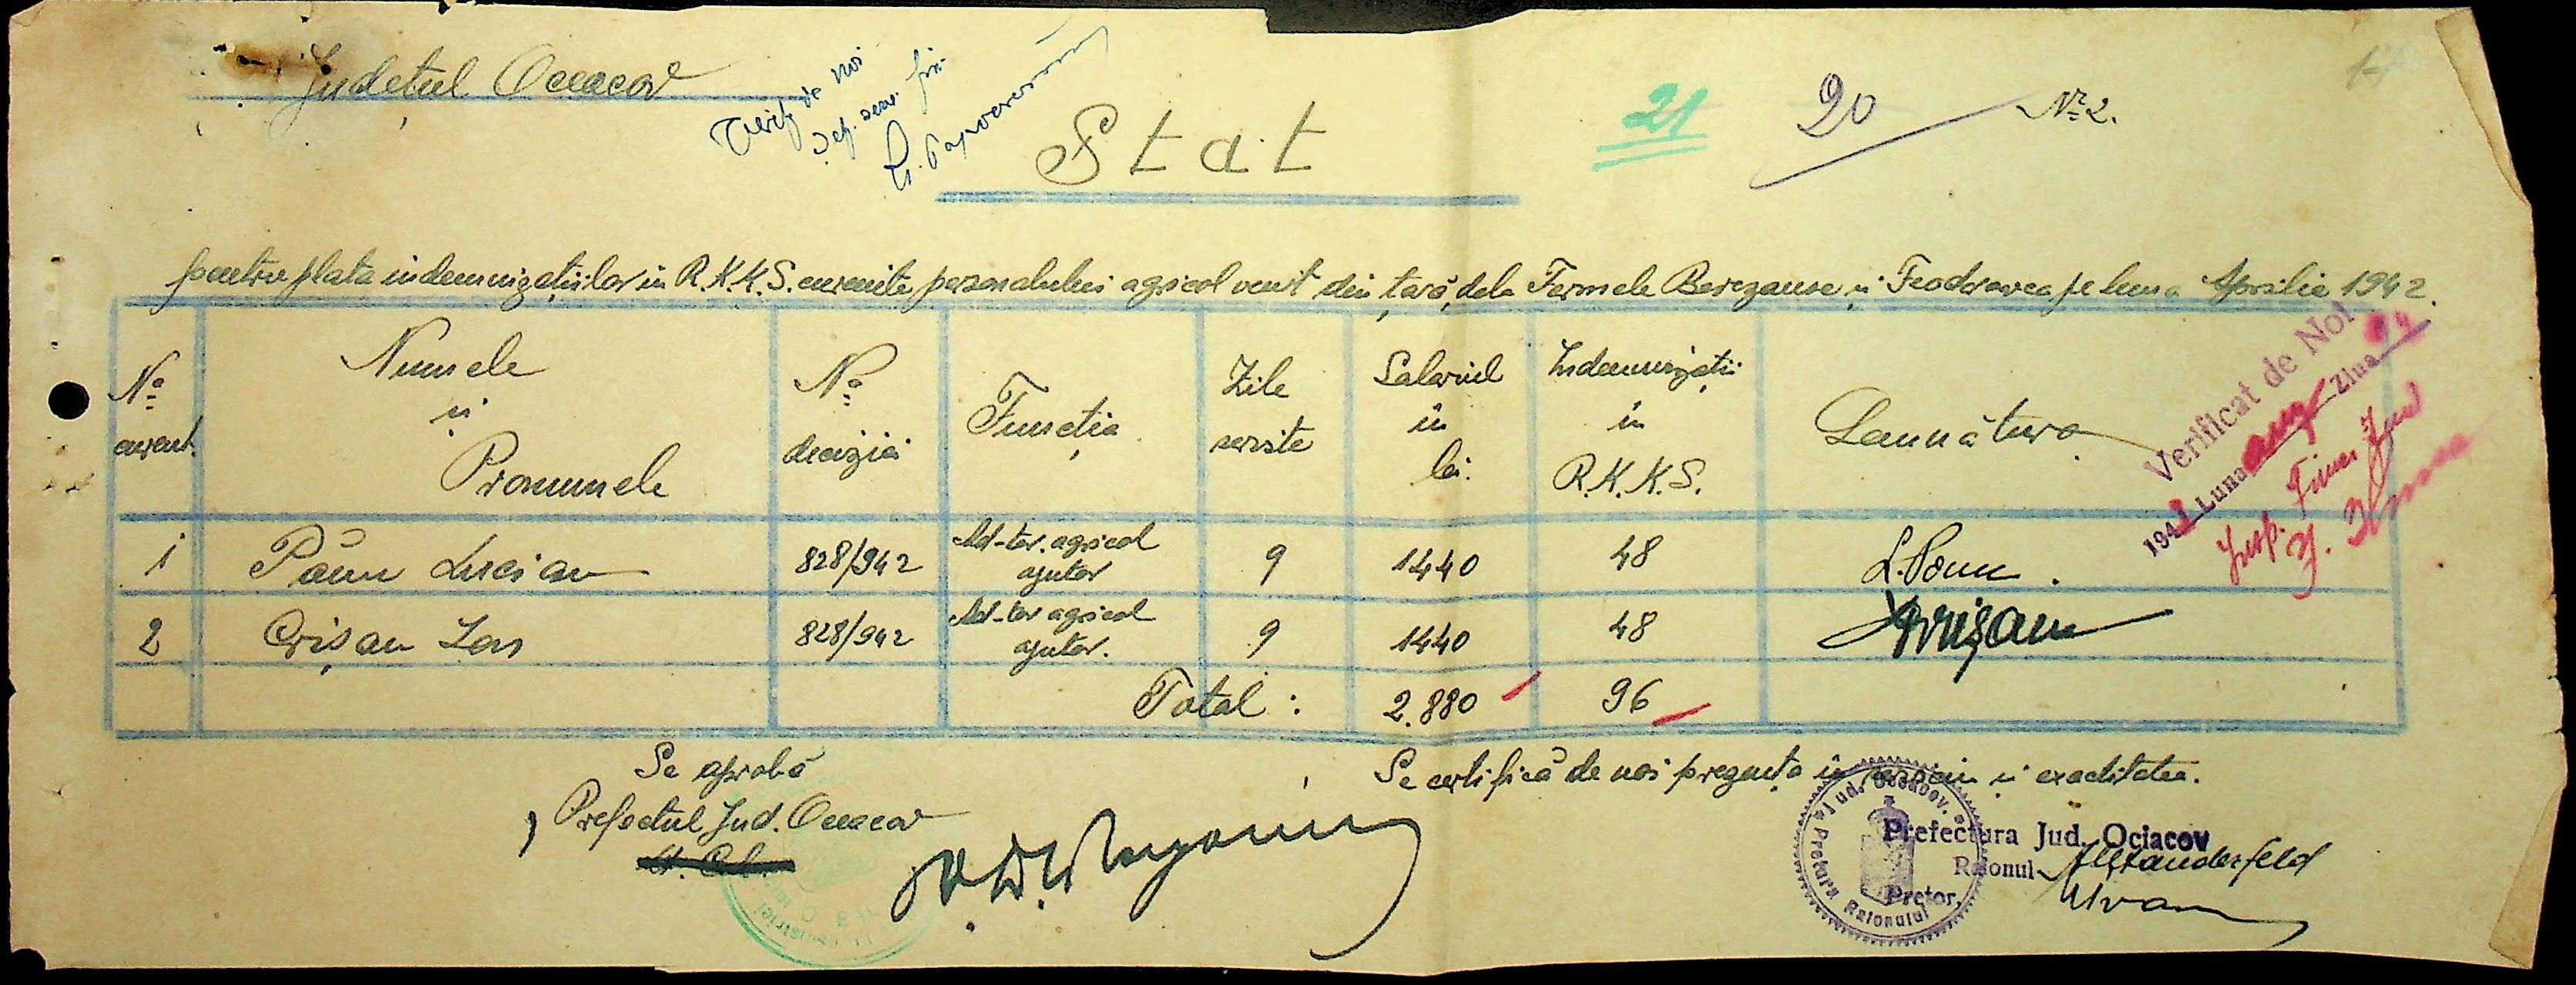 Județul Oceacov
Verif de noi
Șef. serv. fin.
21
20
№ 2.
Stat
pentru plata indemnizațiilor în R.K.K.S. cuvenite personalului agricol venit din țară, dela Fermele Berezanse și Feodorovca pe luna Aprilie 1942.
№ curent.
Numele și Pronumele
№ deciziei
Funcția
Zile servite
Salariul în lei.
Indemnizații în R.K.K.S.
Semnătura
1 Păun Lucian 828/942 Ad-tor. agricol ajutor 9 1440 48 L. Păun.
2 Crișan Ion 828/942 Ad-tor agricol ajutor. 9 1440 48 Crișan
Total: 2.880 96
Verificat de Noi
194 Luna aug Ziua
Insp. Finan Jud
Se aprobă
Prefectul Jud. Oceacov
Se certifică de noi prezența în serviciu și exactitatea.
Prefectura Jud. Ociacov
Raionul Alexanderfeld
Pretor,
Jud. Oceacov
Pretura Raionului